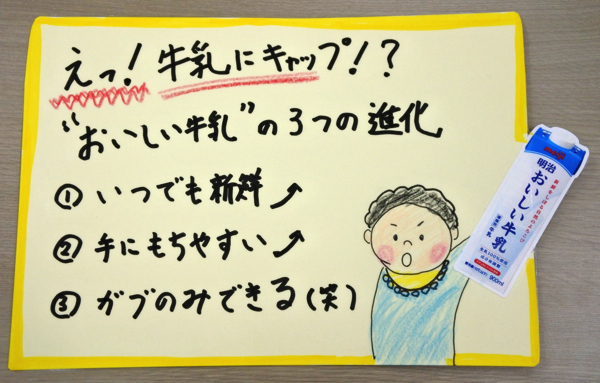 えっ!牛乳にキャップ!?
"おいしい牛乳"の3つの進化
① いつでも新鮮↗
② 手にもちやすい↗
③ ガブのみできる(笑)
明治
おいしい牛乳
900ml